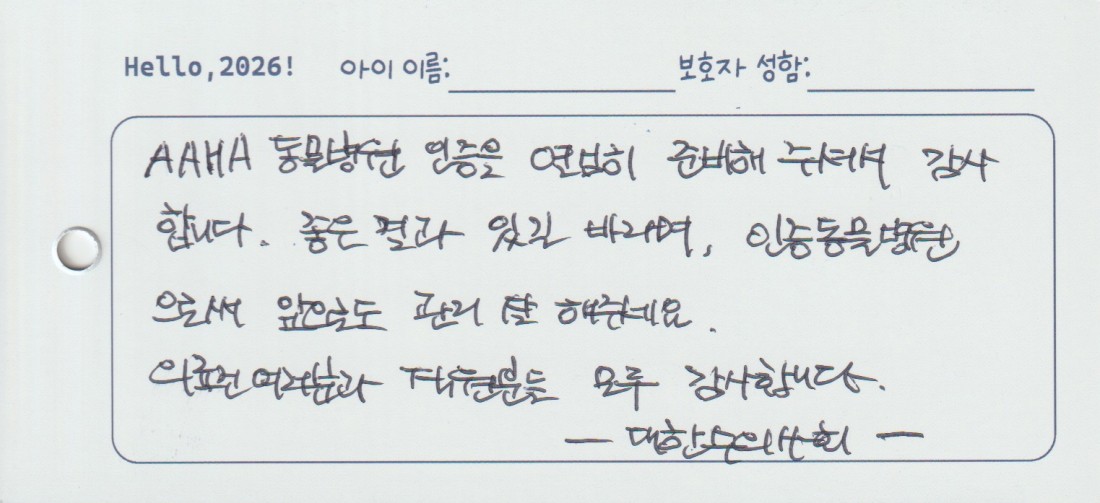 Hello,2026! 아이 이름: 보호자 성함:
AAHA 동물병원 인증을 열심히 준비해 주셔서 감사
합니다. 좋은 결과 있길 바라며, 인증동물병원
으로써 앞으로도 관리 잘 해주세요.
의료진여러분과 직원분들 모두 감사합니다.
- 대한수의사회 -